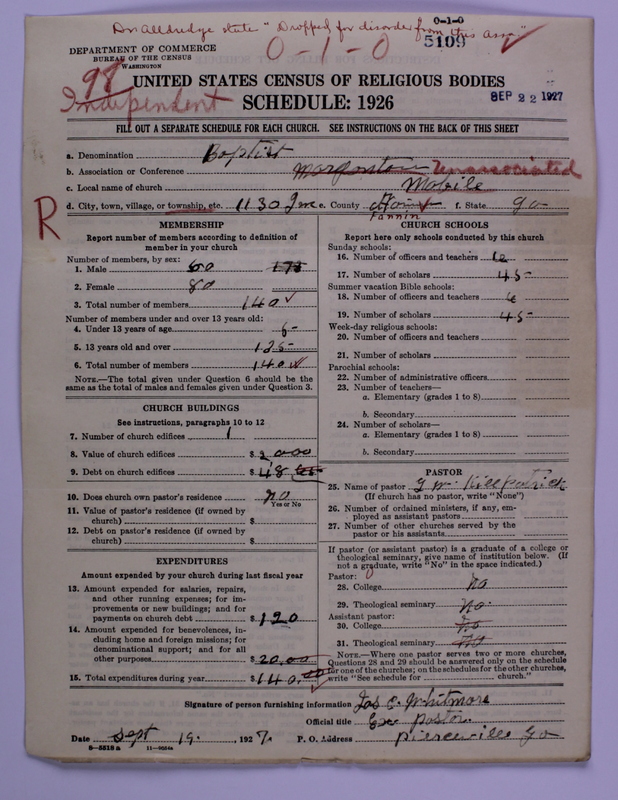 Dr Alldredge state "Dropped for disorder from this assn"
0-1-0
0-1-0
5109
DEPARTMENT OF COMMERCE
BUREAU OF THE CENSUS
WASHINGTON
98
Independent
UNITED STATES CENSUS OF RELIGIOUS BODIES
SCHEDULE: 1926
SEP 22 1927
FILL OUT A SEPARATE SCHEDULE FOR EACH CHURCH. SEE INSTRUCTIONS ON THE BACK OF THIS SHEET
a. Denomination Baptist
b. Association or Conference Morganton Unassociated
c. Local name of church Mobile
d. City, town, village, or township, etc. 1130 e. County Fannin f. State Ga
R
MEMBERSHIP
Report number of members according to definition of
member in your church
Number of members, by sex:
1. Male 60 178
2. Female 80
3. Total number of members 140 ✓
Number of members under and over 13 years old:
4. Under 13 years of age
5. 13 years old and over
6. Total number of members 140 ✓
NOTE.—The total given under Question 6 should be the
same as the total of males and females given under Question 3.
CHURCH BUILDINGS
See instructions, paragraphs 10 to 12
7. Number of church edifices 1
8. Value of church edifices $ 2000
9. Debt on church edifices $ 48
10. Does church own pastor's residence no
Yes or No
11. Value of pastor's residence (if owned by
church) $
12. Debt on pastor's residence (if owned by
church) $
EXPENDITURES
Amount expended by your church during last fiscal year
13. Amount expended for salaries, repairs,
and other running expenses; for im-
provements or new buildings; and for
payments on church debt $ 120
14. Amount expended for benevolences, in-
cluding home and foreign missions; for
denominational support; and for all
other purposes $ 20.00
15. Total expenditures during year $ 140.00 ✓
CHURCH SCHOOLS
Report here only schools conducted by this church
Sunday schools:
16. Number of officers and teachers 6
17. Number of scholars 45
Summer vacation Bible schools:
18. Number of officers and teachers 6
19. Number of scholars 45
Week-day religious schools:
20. Number of officers and teachers
21. Number of scholars
Parochial schools:
22. Number of administrative officers
23. Number of teachers—
a. Elementary (grades 1 to 8)
b. Secondary
24. Number of scholars—
a. Elementary (grades 1 to 8)
b. Secondary
PASTOR
25. Name of pastor J W Killpatrick
(If church has no pastor, write "None")
26. Number of ordained ministers, if any, em-
ployed as assistant pastors
27. Number of other churches served by the
pastor or his assistants
If pastor (or assistant pastor) is a graduate of a college or
theological seminary, give name of institution below. (If
not a graduate, write "No" in the space indicated.)
Pastor:
28. College no
29. Theological seminary no
Assistant pastor:
30. College no
31. Theological seminary no
NOTE.—Where one pastor serves two or more churches,
Questions 28 and 29 should be answered only on the schedule
for one of the churches; on the schedules for the other churches,
write "See schedule for church."
Signature of person furnishing information Jas C. Whitmore
Official title Ex pastor
Date Sept 19, 1927. P. O. Address Pierceville Ga
8-5818 a